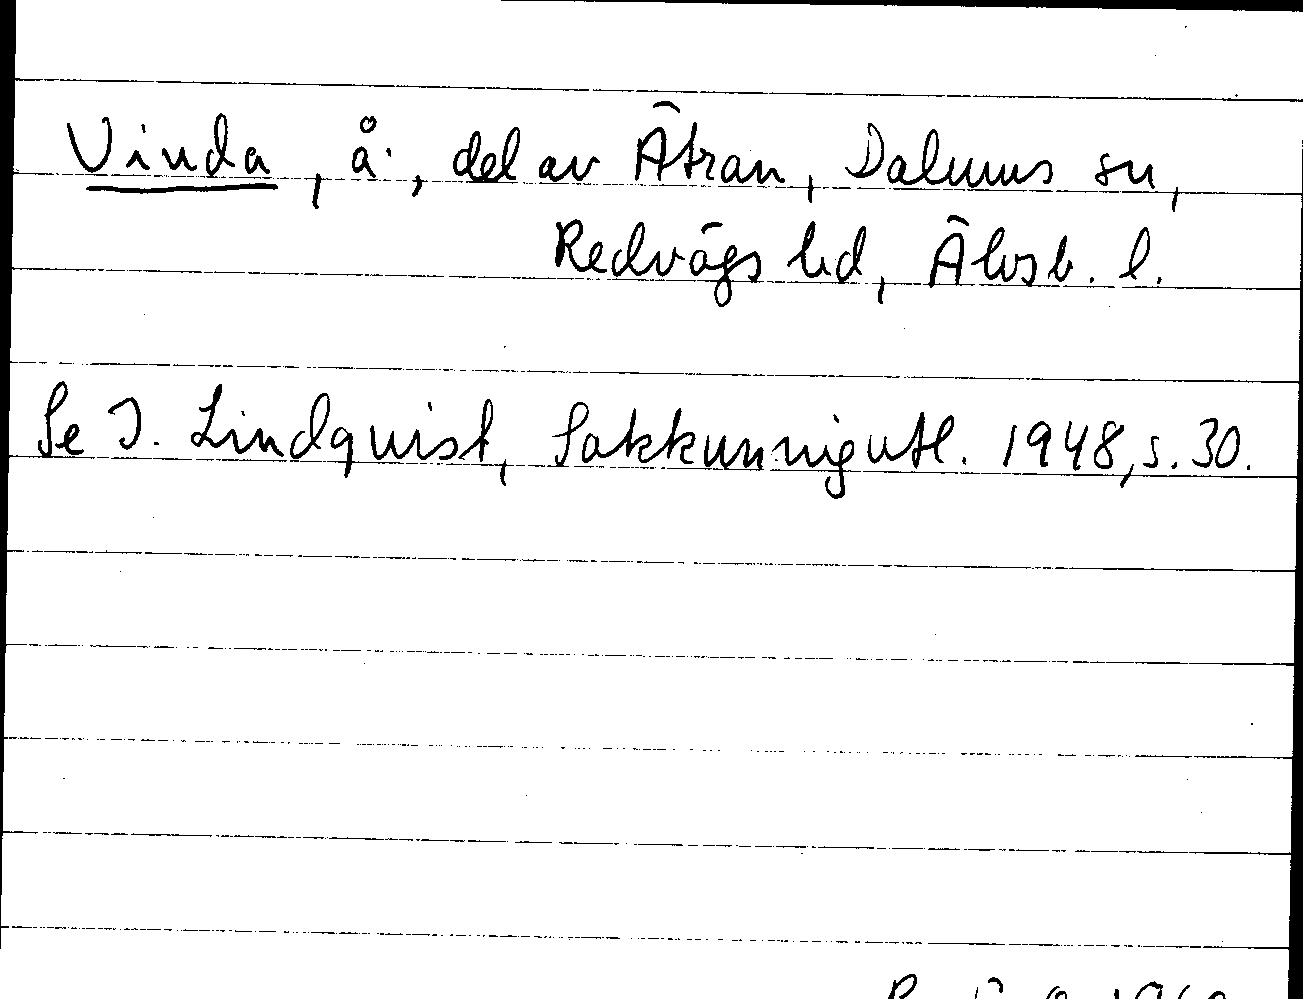 Vinda, å, del av Ätran, Dalums sn,
Redvägs hd, Älvsb. l.
Se I. Lindquist, Sakkunnigutl. 1948, s. 30.